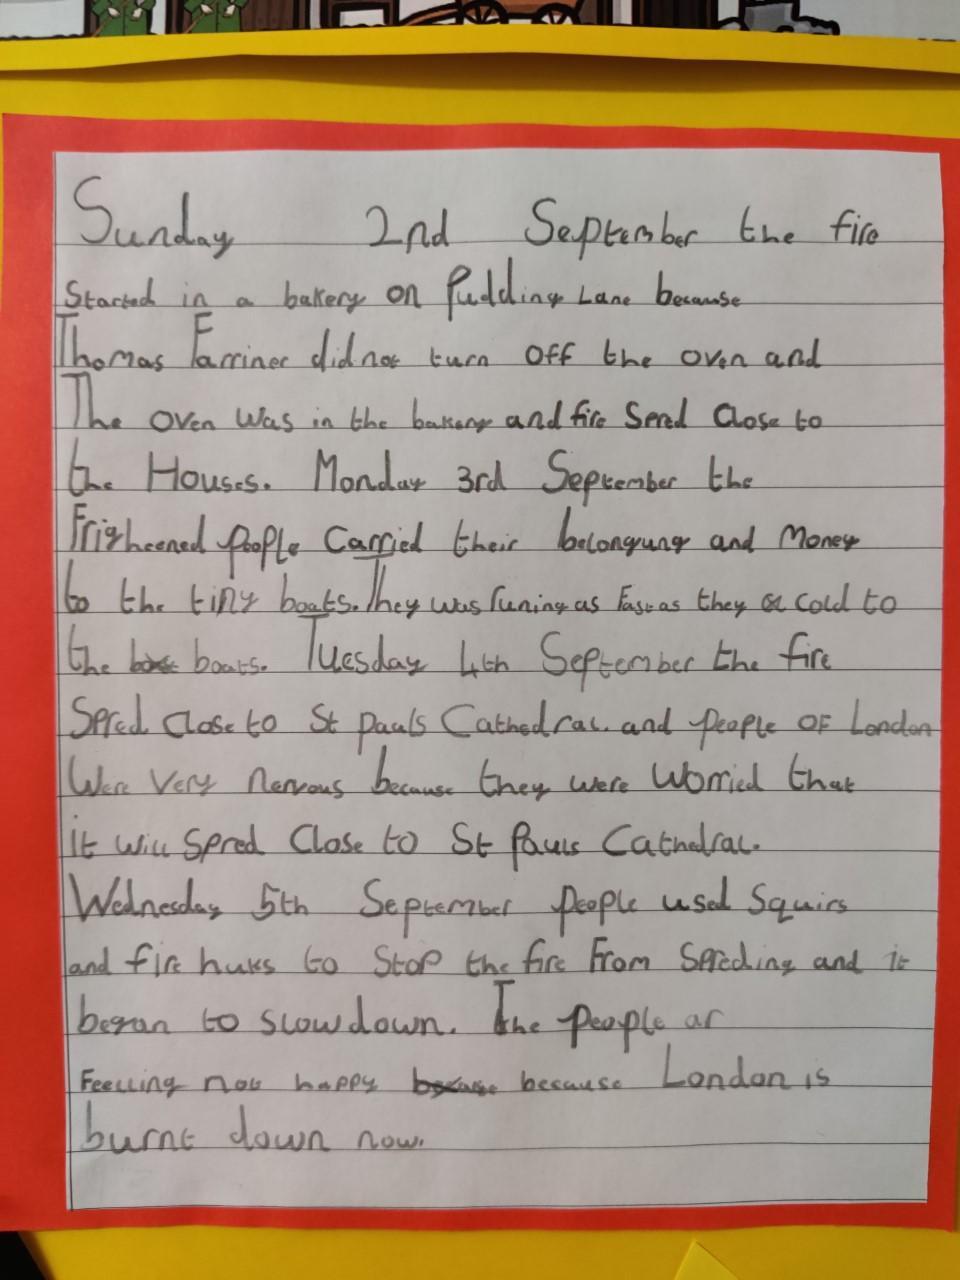 Sunday 2nd September the fire
Started in a bakery on Pudding Lane because
Thomas Farriner did not turn off the oven and
The oven was in the bakery and fire Spred Close to
the Houses. Monday 3rd September the
Frigheened people Carried their belongung and Money
to the tiny boats. They was runing as Fast as they cold to
the boats. Tuesday 4th September the fire
Spred Close to St Pauls Cathedral. and people OF London
Were Very nervous because they were Worried that
it will Spred Close to St Pauls Cathedral.
Wednesday 5th September people used Squirs
and fire huks to Stop the fire From Spreding and it
began to slow down. The people ar
Feelling not happy because London is
burnt down now.